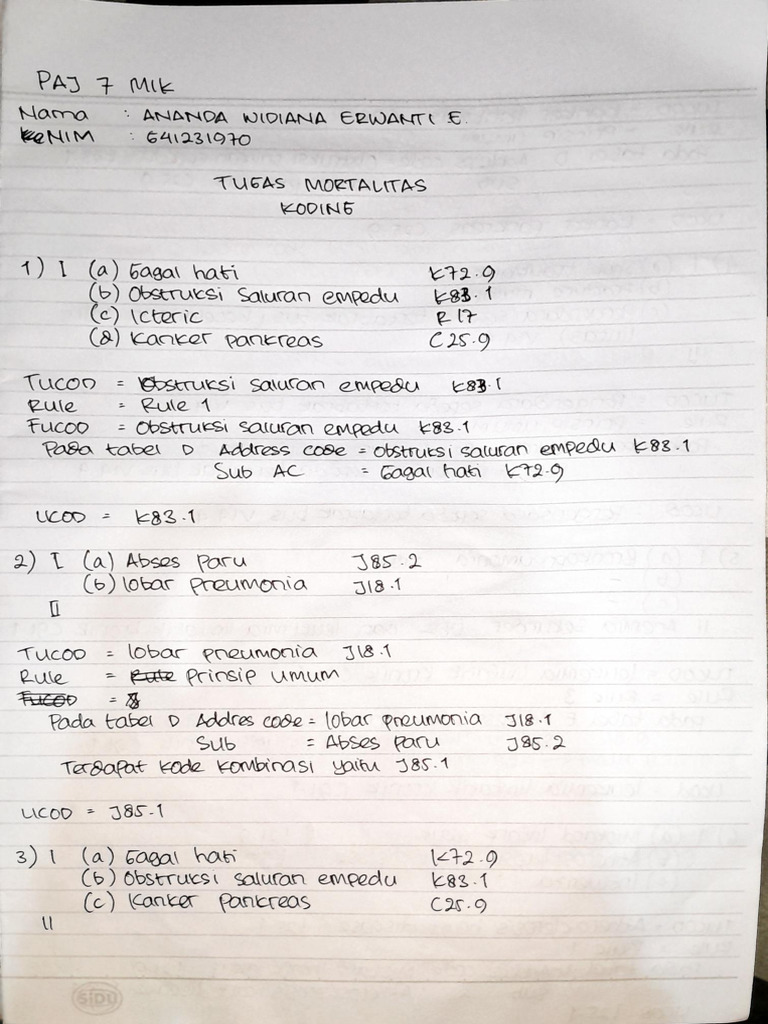 PAJ 7 MIK
Nama : ANANDA WIDIANA ERWANTI E.
NIM : G41231970
TUGAS MORTALITAS
KODING
1) I (a) Gagal hati K72.9
(b) Obstruksi saluran empedu K83.1
(c) Icteric R17
(d) Kanker pankreas C25.9
TUCOD = Obstruksi saluran empedu K83.1
Rule = Rule 1
FUCOD = Obstruksi saluran empedu K83.1
Pada tabel D Address code = obstruksi saluran empedu K83.1
Sub AC = Gagal hati K72.9
UCOD = K83.1
2) I (a) Abses Paru J85.2
(b) lobar pneumonia J18.1
II
TUCOD = lobar pneumonia J18.1
Rule = Rule Prinsip umum
FUCOD =
Pada tabel D Addres code = lobar pneumonia J18.1
Sub = Abses paru J85.2
Terdapat kode kombinasi yaitu J85.1
UCOD = J85.1
3) I (a) Gagal hati K72.9
(b) Obstruksi saluran empedu K83.1
(c) Kanker Pankreas C25.9
II
SIDU